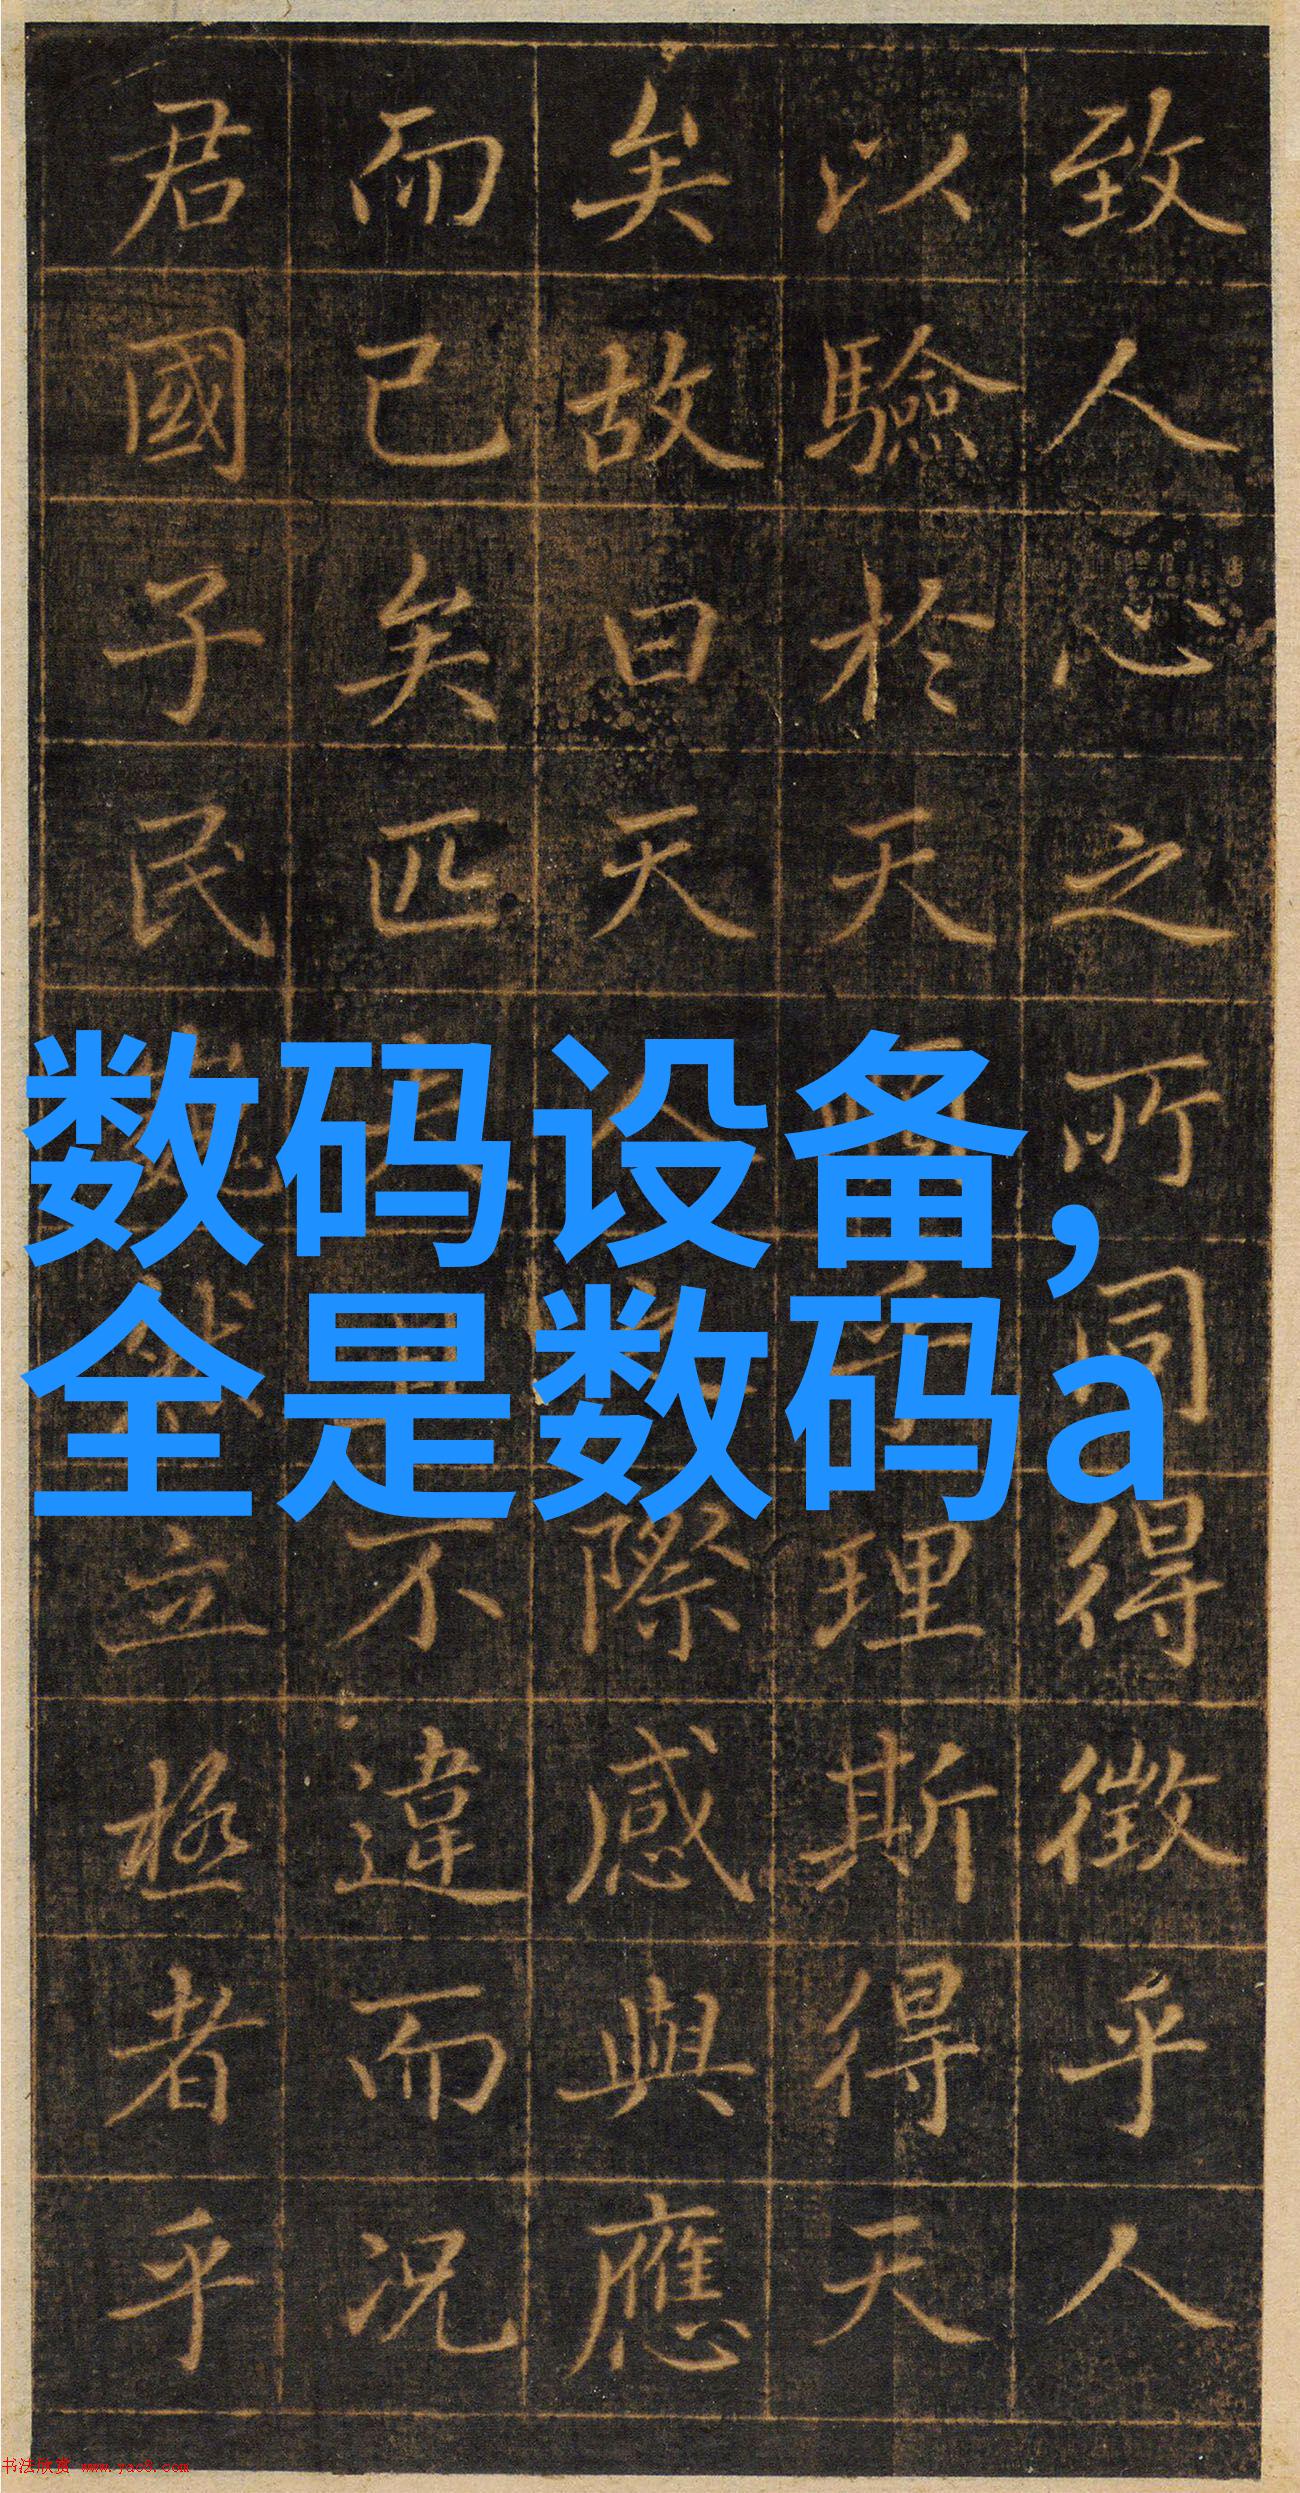 致人心之所同得徵乎人
以驗於天理斯得天
矣故曰天人際感與應
而已矣匹夫不違而況
君國子民巍然立極者乎
数码设备,
全是数码a
书法欣赏 www.yac8.com